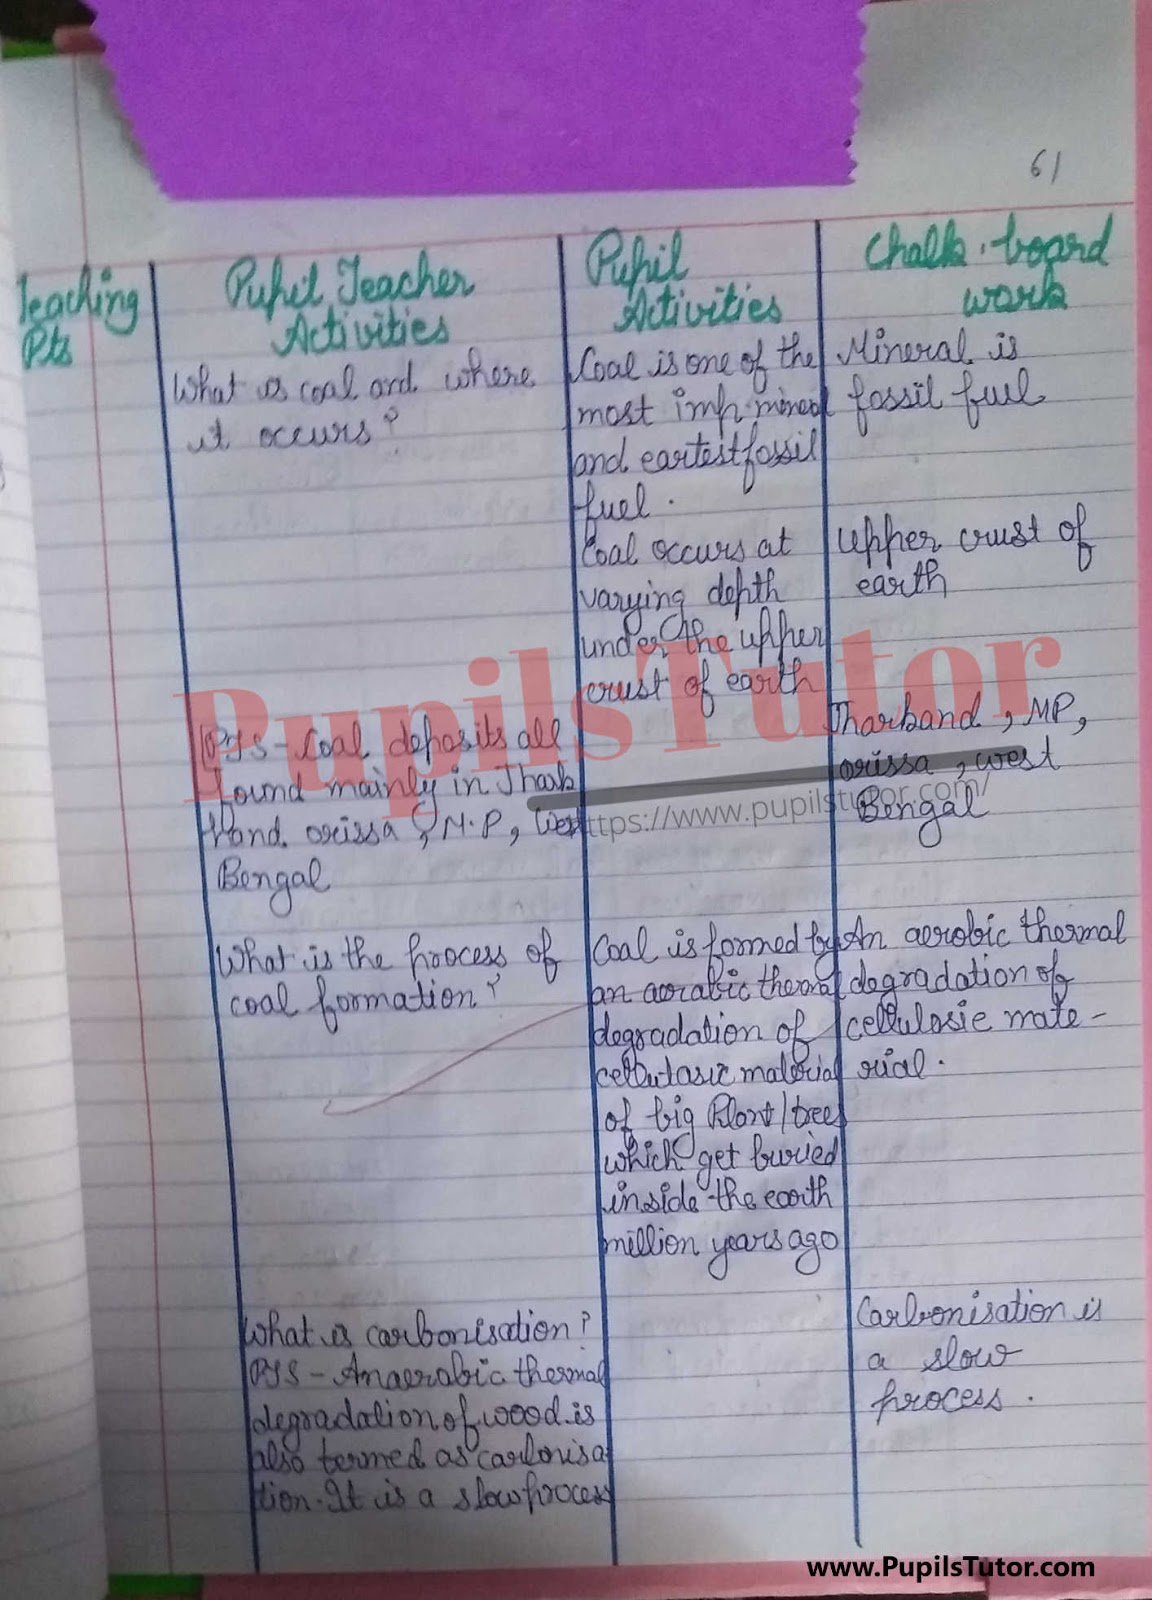 61
Teaching
Pts
Pupil Teacher
Activities
Pupil
Activities
Chalk-board
work
What is coal and where
it occurs?
Coal is one of the
most imp. mineral
and eartest fossil
fuel.
Mineral is
fossil fuel
Coal occurs at
varying depth
under the upper
crust of earth
Upper crust of
earth
PTS - Coal deposits all
found mainly in Jhark
Hand. orissa, M.P, West
Bengal
Jharband, MP,
orissa, west
Bengal
What is the process of
coal formation?
Coal is formed by
an aorabic thermal
degradation of
cellutasic material
of big Plant/trees
which get buried
inside the earth
million years ago
An aerobic thermal
degradation of
cellulosie mate-
rial.
What is carbonisation?
PTS - Anaerabic thermal
degradation of wood is
also termed as carbonisa
tion. It is a slow process
Carbonisation is
a slow
process.
PupilsTutor
https://www.pupilstutor.com/
www.PupilsTutor.com